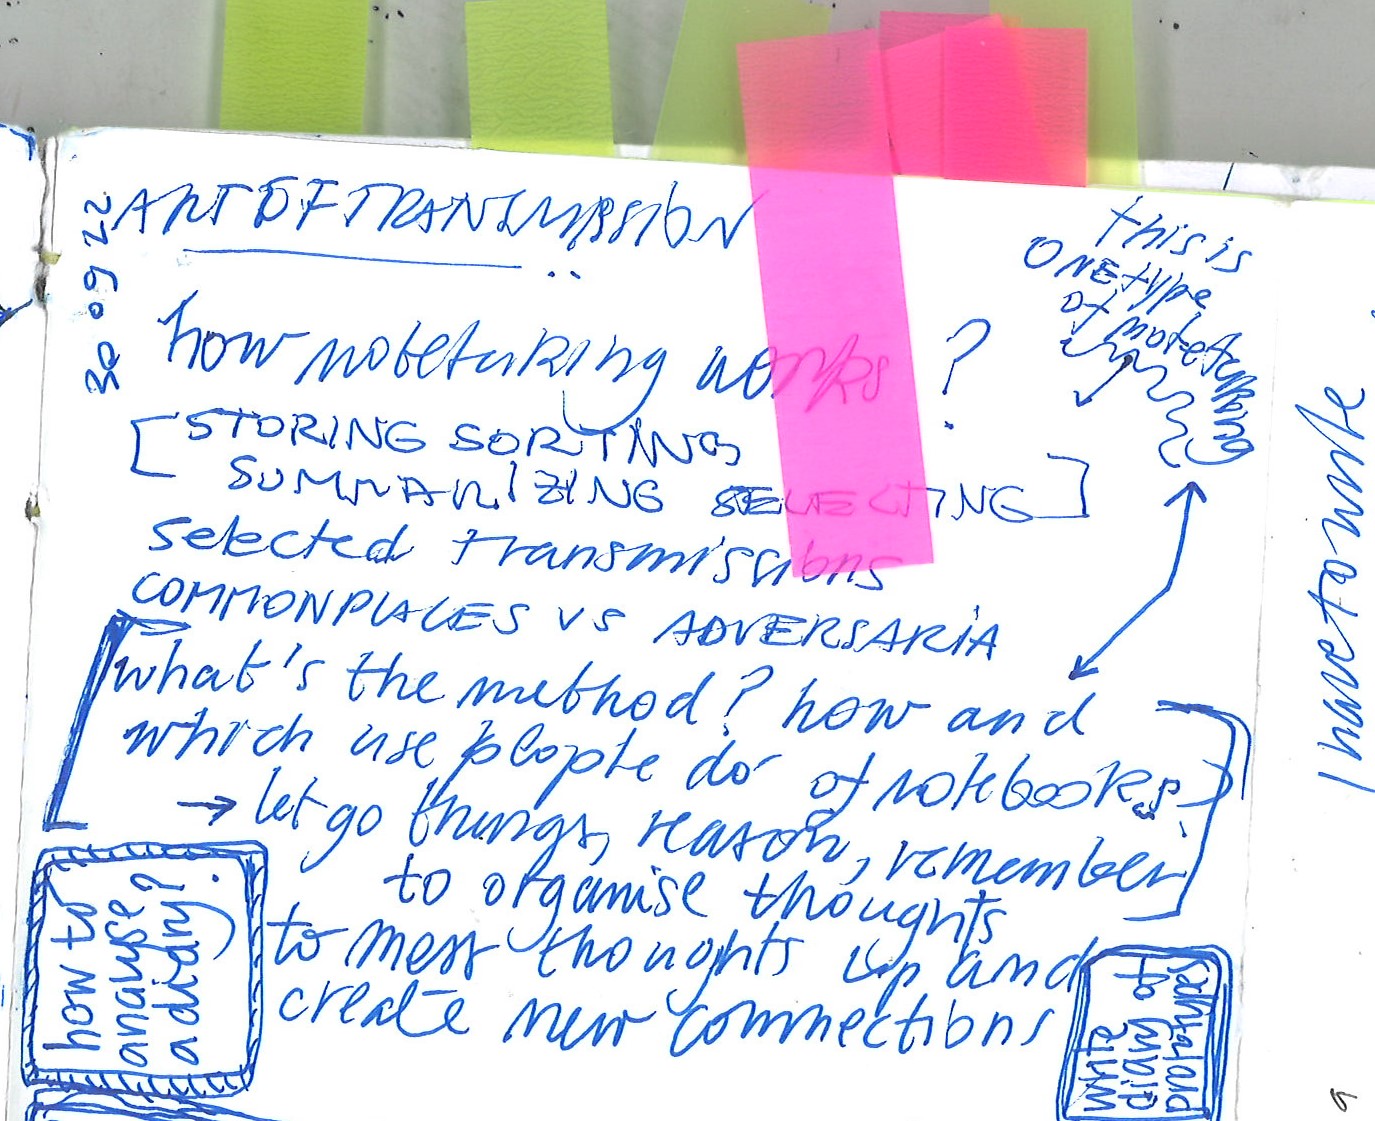 30 09 22
ART OF TRANSMISSION
how notetaking works ?
[STORING SORTING
SUMMARIZING SELECTING]
selected transmissions
COMMONPLACES VS ADVERSARIA
what's the method? how and
which use people do of notebooks?
→ let go things, reason, remember
to organise thoughts
to mess thoughts up and
create new connections
this is
ONE type
of notetaking
how to
analyse
a diary?
write
diary of
I have to write